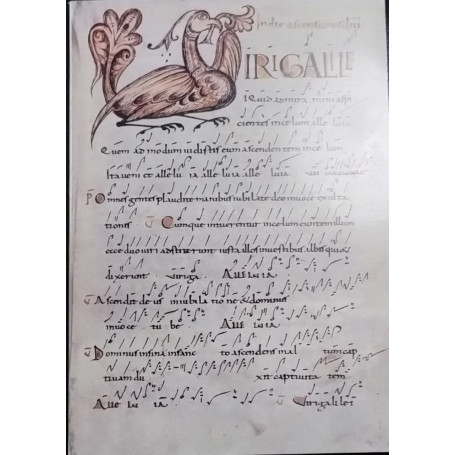 In die ascensionis dnj
IRI GALILE
i Quid admira mini aspi
cientes in ce lum alle luia
Quem ad modum vi distis eum ascenden tem in ce lum
Ita veni et alle lu ia alle luia alle luia
Ps Omnes gentes plaudite manibus iubilate deo in uoce exulta
tionis Cumque intuerentur in celum euntem illum
ecce duo uiri adstiterunt iuxta illos in uestibus albis qui &
dixerunt Viri ga. Alle lu ia
Ascendit deus in iubila tio ne & dominus
in uo ce tu be Alle lu ia
Dominus in sina in sanc to ascendens in al tum cap
tiuam du xit captiuita tem
Alle lu ia Viri galile i